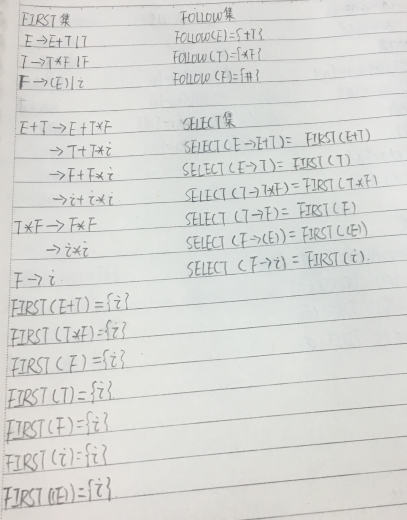 FIRST集 FOLLOW集
E→E+T|T FOLLOW(E)={+T}
T→T*F|F FOLLOW(T)={*F}
F→(E)|i FOLLOW(F)={#}
E+T→E+T*F SELECT集
→T+T*i SELECT(E→E+T)= FIRST(E+T)
→F+F*i SELECT(E→T)= FIRST(T)
→i+i*i SELECT(T→T*F)=FIRST(T*F)
T*F→F*F SELECT(T→F)= FIRST(F)
→i*i SELECT(F→(E))=FIRST((E))
F→i SELECT(F→i)=FIRST(i).
FIRST(E+T)={i}
FIRST(T*F)={i}
FIRST(F)={i}
FIRST(T)={i}
FIRST(F)={i}
FIRST(i)={i}
FIRST((E))={i}